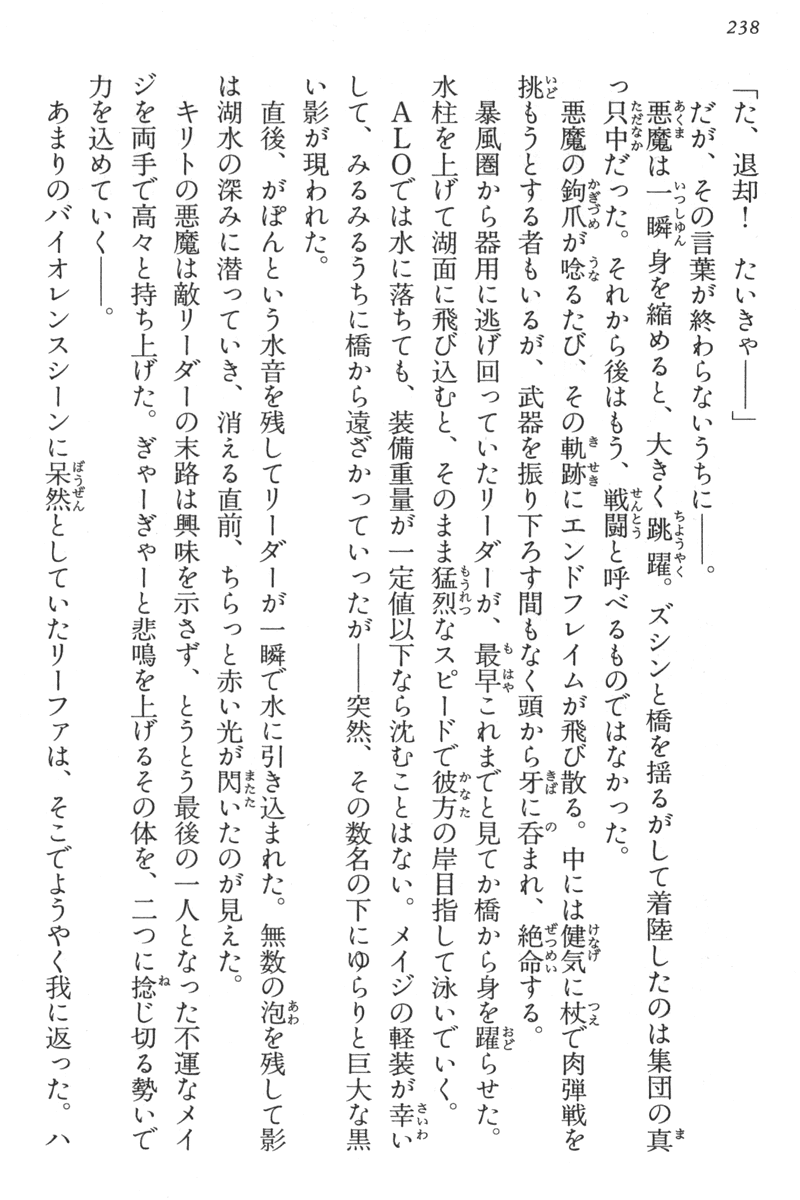 238
「た、退却！　たいきゃ――」
だが、その言葉が終わらないうちに――。
悪魔は一瞬身を縮めると、大きく跳躍。ズシンと橋を揺るがして着陸したのは集団の真
っ只中だった。それから後はもう、戦闘と呼べるものではなかった。
悪魔の鉤爪が唸るたび、その軌跡にエンドフレイムが飛び散る。中には健気に杖で肉弾戦を
挑もうとする者もいるが、武器を振り下ろす間もなく頭から牙に呑まれ、絶命する。
暴風圏から器用に逃げ回っていたリーダーが、最早これまでと見てか橋から身を躍らせた。
水柱を上げて湖面に飛び込むと、そのまま猛烈なスピードで彼方の岸目指して泳いでいく。
ＡＬＯでは水に落ちても、装備重量が一定値以下なら沈むことはない。メイジの軽装が幸い
して、みるみるうちに橋から遠ざかっていったが――突然、その数名の下にゆらりと巨大な黒
い影が現われた。
直後、がぽんという水音を残してリーダーが一瞬で水に引き込まれた。無数の泡を残して影
は湖水の深みに潜っていき、消える直前、ちらっと赤い光が閃いたのが見えた。
キリトの悪魔は敵リーダーの末路は興味を示さず、とうとう最後の一人となった不運なメイ
ジを両手で高々と持ち上げた。ぎゃーぎゃーと悲鳴を上げるその体を、二つに捻じ切る勢いで
力を込めていく――。
あまりのバイオレンスシーンに呆然としていたリーファは、そこでようやく我に返った。ハ